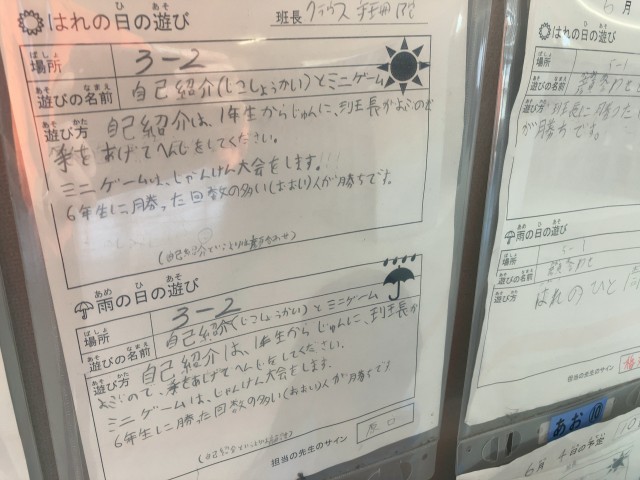 はれの日の遊び
班長
場所 3-2
遊びの名前 自己紹介(じこしょうかい)とミニゲーム
遊び方 自己紹介は、1年生からじゅんに、班長がよぶので
挙をあげてへんじをしてください。
ミニゲームは、じゃんけん大会をします。!!!
6年生に勝った回数の多い(おおい)人が勝ちです。
雨の日の遊び
場所 3-2
遊びの名前 自己紹介(じこしょうかい)とミニゲーム
遊び方 自己紹介は、1年生からじゅんに、班長が
よぶので、挙をあげてへんじをしてください。
ミニゲームは、じゃんけん大会をします。
6年生に勝った回数の多い(おおい)人が勝ちです
担当の先生のサイン
月
はれの日の遊び
場所 5-1
遊びの名前
遊び方 班長に勝った
が勝ちです。
雨の日の遊び
場所 5-1
遊びの名前
遊び方 はれのひと同
担当の先生のサイン
あお10
6月